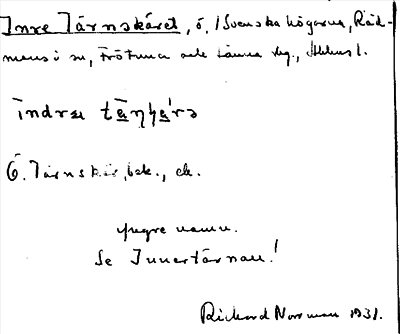 Inre Tärnskäret, ö, i Svenska högarna, Råd-
mansö sn, Frötuna och Länna skg., Sthms l.
īndrɛ tǟn̥ʂɑ̄rə
Ö. Tärnskär, bek., ek.
yngre namn.
Se Innertärnan!
Richard Norrman 1931.